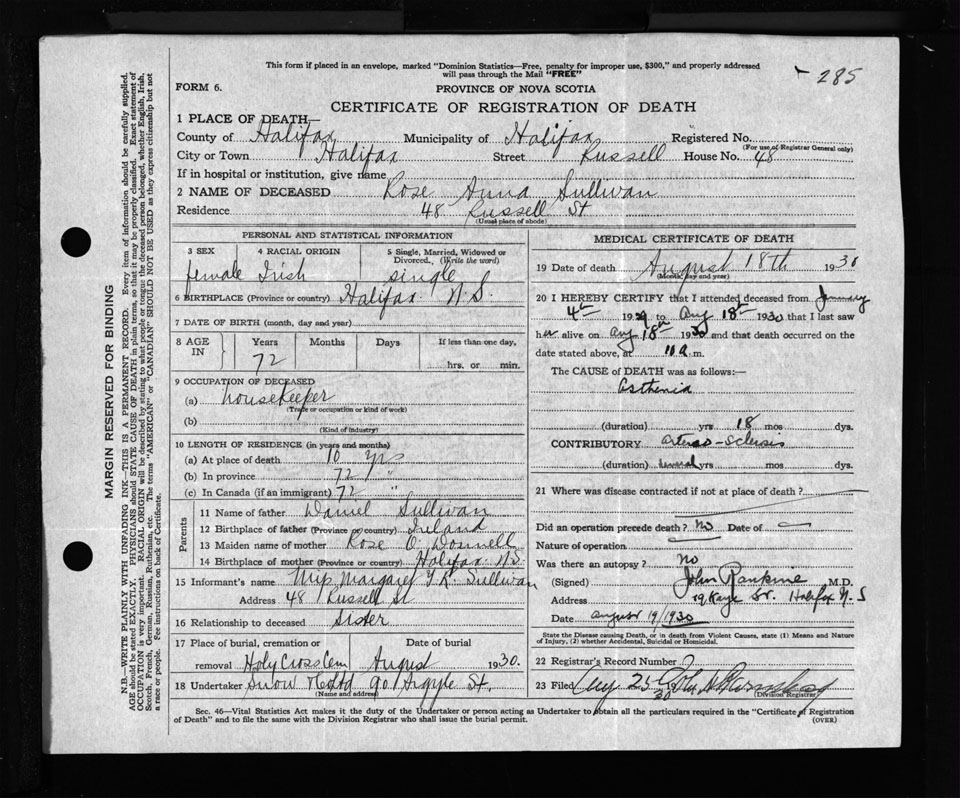 This form if placed in an envelope, marked "Dominion Statistics—Free, penalty for improper use, $300," and properly addressed
will pass through the Mail "FREE"
285
FORM 6.
PROVINCE OF NOVA SCOTIA
CERTIFICATE OF REGISTRATION OF DEATH
1 PLACE OF DEATH—
County of Halifax Municipality of Halifax Registered No.
(For use of Registrar General only)
City or Town Halifax Street Russell House No. 48
If in hospital or institution, give name
2 NAME OF DECEASED Rose Anna Sullivan
Residence 48 Russell St
(Usual place of abode)
PERSONAL AND STATISTICAL INFORMATION
3 SEX 4 RACIAL ORIGIN 5 Single, Married, Widowed or
Divorced. (Write the word)
female Irish single
6 BIRTHPLACE (Province or country) Halifax N.S.
7 DATE OF BIRTH (month, day and year)
8 AGE IN Years Months Days If less than one day,
72 hrs. or min.
9 OCCUPATION OF DECEASED
(a) housekeeper
(Trade or occupation or kind of work)
(b)
(Kind of industry)
10 LENGTH OF RESIDENCE (in years and months)
(a) At place of death 10 yrs
(b) In province 72 "
(c) In Canada (if an immigrant) 72 "
Parents
11 Name of father Daniel Sullivan
12 Birthplace of father (Province or country) Ireland
13 Maiden name of mother Rose O'Donnell
14 Birthplace of mother (Province or country) Halifax N.S.
15 Informant's name Margaret Sullivan
Address 48 Russell St
16 Relationship to deceased Sister
17 Place of burial, cremation or Date of burial
removal Holy Cross Cem August 1930.
18 Undertaker Snow 90 Argyle St.
(Name and address)
MEDICAL CERTIFICATE OF DEATH
19 Date of death August 18th 1930
(Month, day and year)
20 I HEREBY CERTIFY that I attended deceased from January
4th 1929 to Aug 18th 1930 that I last saw
her alive on Aug 18th 1930 and that death occurred on the
date stated above, at 11 a. m.
The CAUSE of DEATH was as follows:—
Asthenia
(duration) yrs 18 mos dys.
CONTRIBUTORY arterio-sclerosis
(duration) several yrs mos dys.
21 Where was disease contracted if not at place of death?
Did an operation precede death? No Date of
Nature of operation
Was there an autopsy? No
(Signed) John Rankine M.D.
Address 19 Kaye St. Halifax N.S
Date August 19/1930
State the Disease causing Death, or in death from Violent Causes, state (1) Means and Nature
of Injury, (2) whether Accidental, Suicidal or Homicidal.
22 Registrar's Record Number
23 Filed Aug 25 30
Division Registrar
Sec. 46—Vital Statistics Act makes it the duty of the Undertaker or person acting as Undertaker to obtain all the particulars required in the "Certificate of Registration
of Death" and to file the same with the Division Registrar who shall issue the burial permit.
(OVER)
MARGIN RESERVED FOR BINDING
N.B.—WRITE PLAINLY WITH UNFADING INK—THIS IS A PERMANENT RECORD. Every item of information should be carefully supplied.
AGE should be stated EXACTLY. PHYSICIANS should STATE CAUSE OF DEATH in plain terms, so that it may be properly classified. Exact statement of
OCCUPATION is very important. RACIAL ORIGIN will be described by stating to what people or tongue the deceased person belonged, whether English, Irish,
Scotch, French, German, Russian, Ruthenian, etc. The terms "AMERICAN" or "CANADIAN" SHOULD NOT BE USED as they express citizenship but not
a race or people. See instructions on back of Certificate.